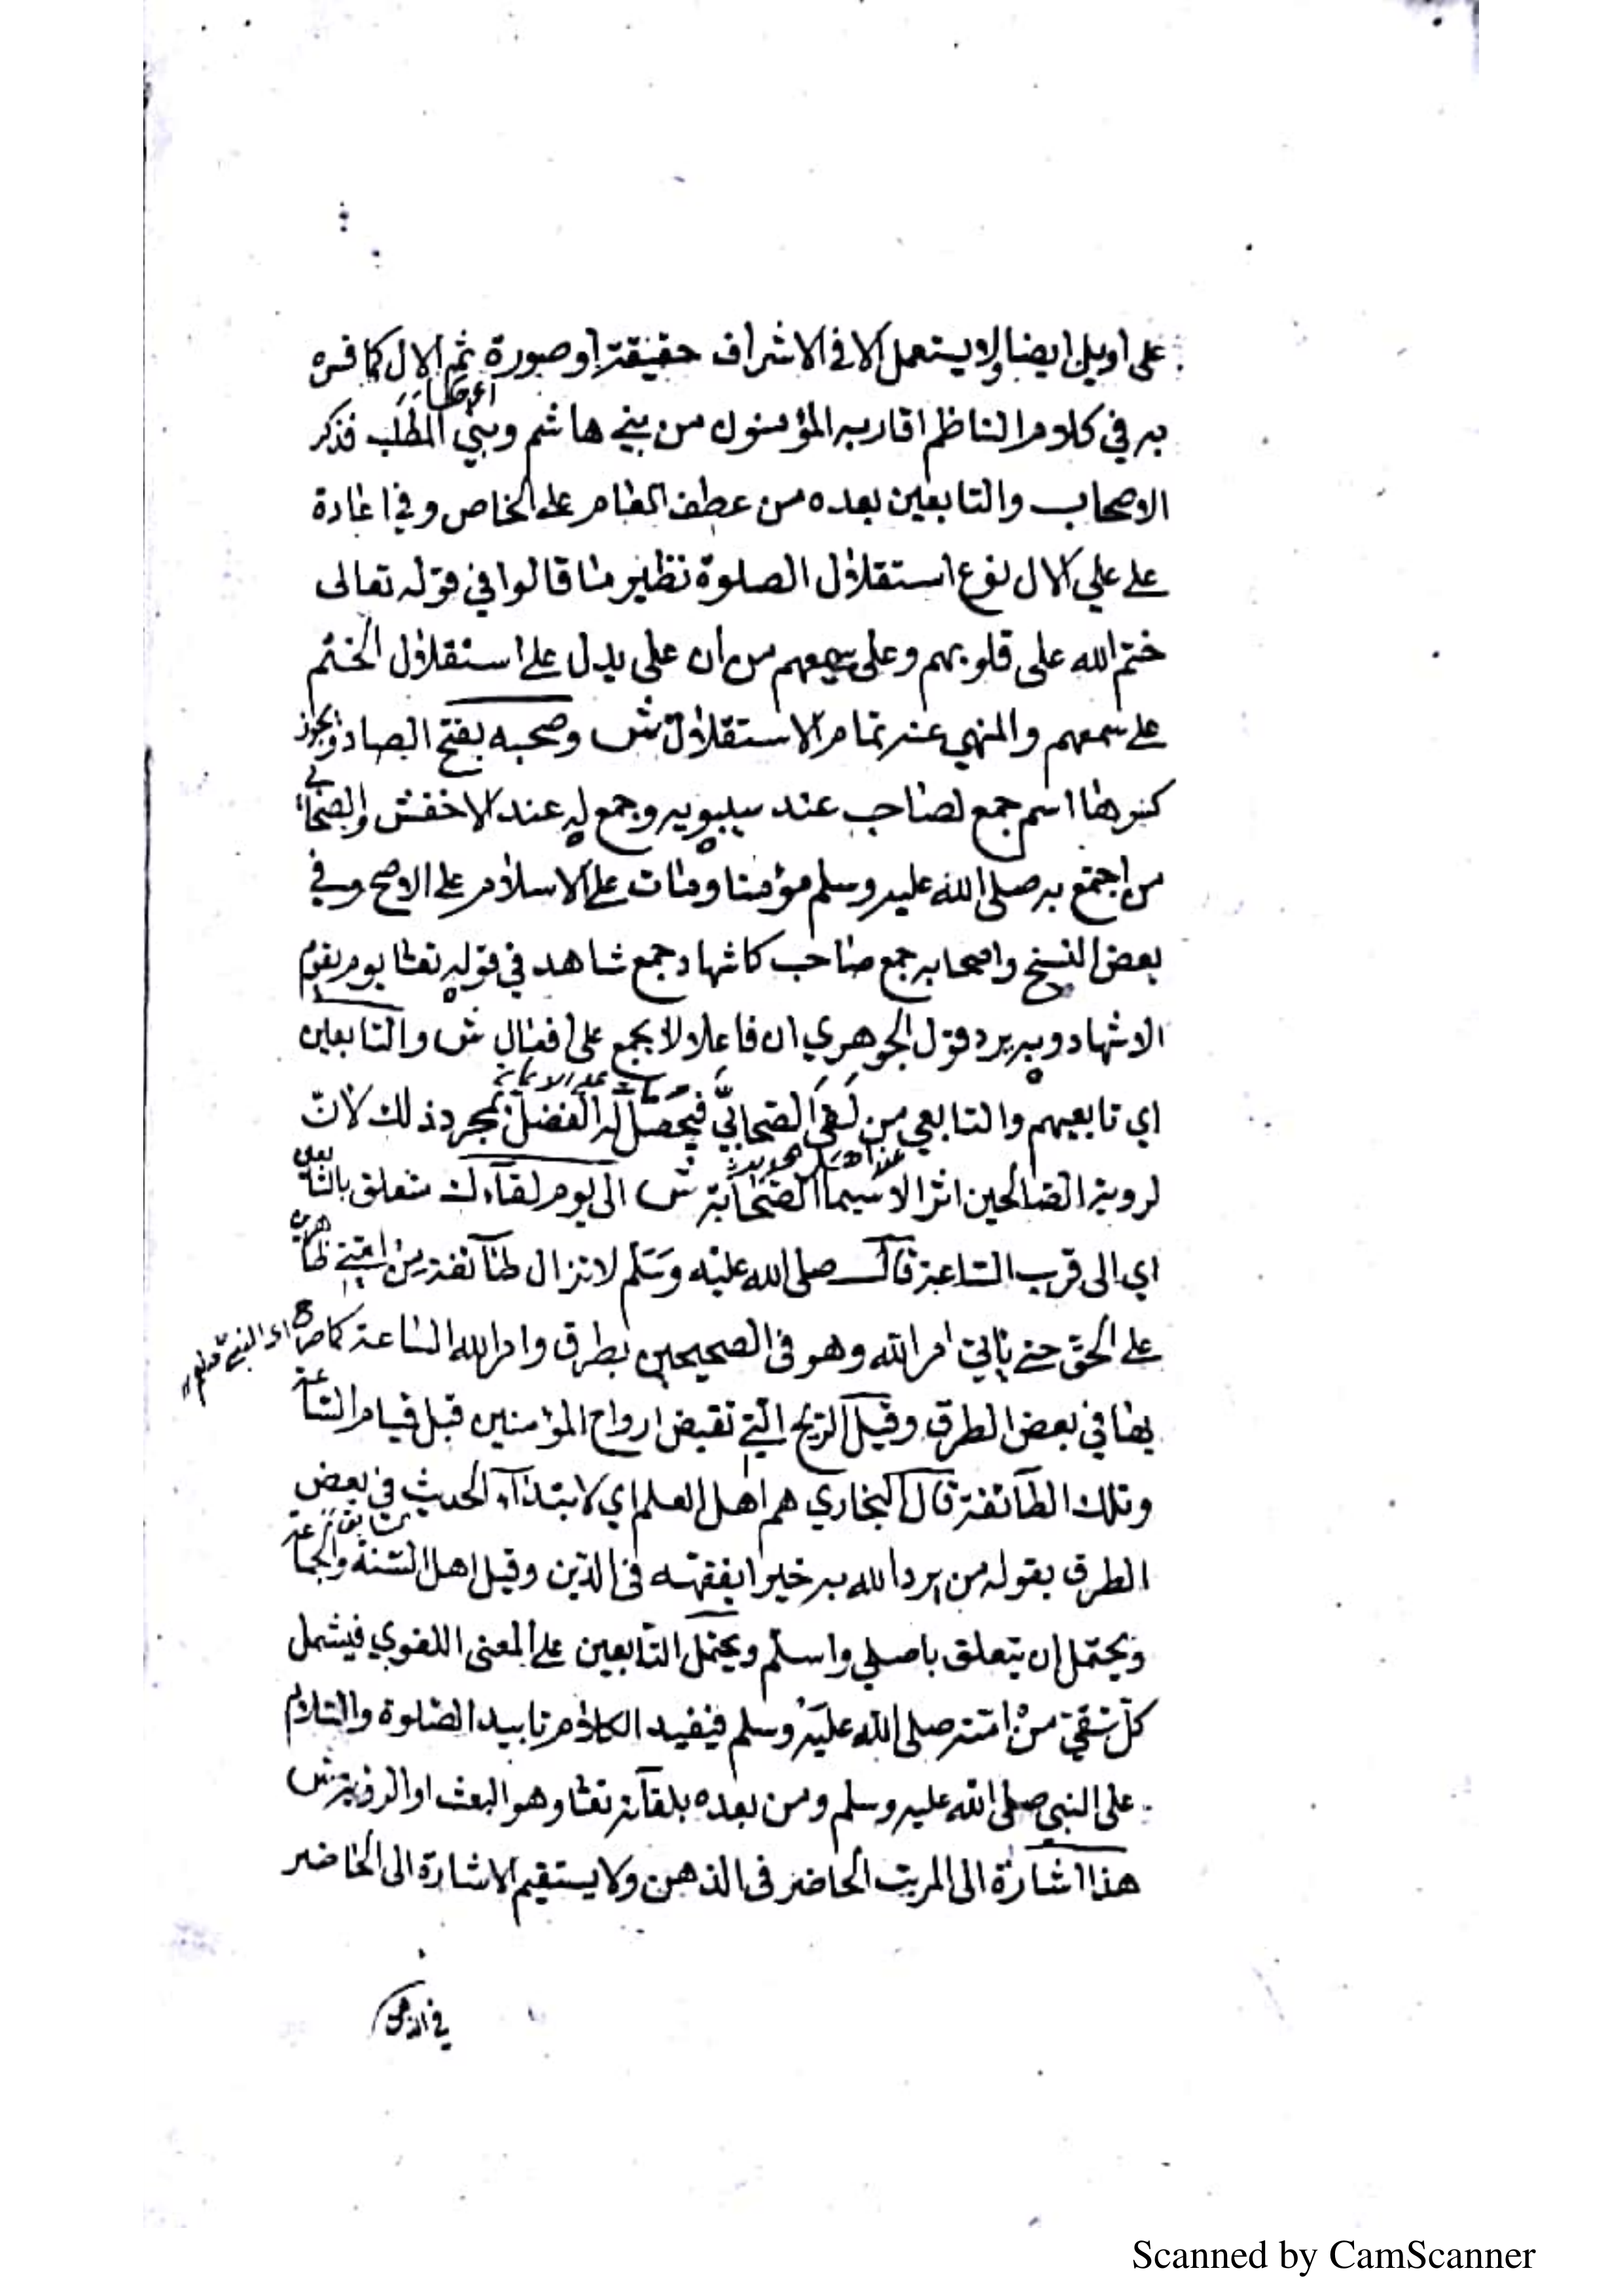 على اويل ايضا ولا يستعمل الا في الاشراف حقيقة او صورة ثم الال كما فسره
به في كلام الناظم اقاربه المؤمنون من بني هاشم وبني المطلب فذكر
الاصحاب والتابعين بعده من عطف العام على الخاص وفي اعادة
على علي الال نوع استقلال الصلوة نظير ما قالوا في قوله تعالى
ختم الله على قلوبهم وعلى سمعهم من ان على يدل على استقلال الختم
على سمعهم والمنهي عنه تمام الاستقلال ش وصحبه بفتح الصاد ويجوز
كسرها اسم جمع لصاحب عند سيبويه وجمع له عند الاخفش والصحابي
من اجتمع به صلى الله عليه وسلم مؤمنا ومات على الاسلام على الاصح وفي
بعض النسخ واصحابه جمع صاحب كاشهاد جمع شاهد في قوله تعا يوم يقوم
الاشهاد وبه يرد قول الجوهري ان فاعلا لا يجمع على افعال ش والتابعين
اي تابعيهم والتابعي من لقي الصحابي فيحصل له الفضل بمجرد ذلك لان
لروية الصالحين اثرا لا سيما الصحابة ش الى يوم لقاءك متعلق بالتابعين
اي الى قرب الساعة قال صلى الله عليه وسلم لا تزال طآئفة من امتي ظاهرين
على الحق حتى ياتي امر الله وهو في الصحيحين بطرق وامر الله الساعة كما صرح
بها في بعض الطرق وقيل الريح التي تقبض ارواح المؤمنين قبل قيام الساعة
وتلك الطآئفة قال البخاري هم اهل العلم اي لابتدآء الحديث في بعض
الطرق بقوله من يرد الله به خيرا يفقهه في الدين وقيل اهل السنة والجماعة
ويحتمل ان يتعلق باصلي واسلم ويحتمل التابعين على المعنى اللغوي فيشمل
كل تقي من امته صلى الله عليه وسلم فيفيد الكلام تابيد الصلوة والسلام
على النبي صلى الله عليه وسلم ومن بعده بلقآئه تعا وهو البعث او الروية ش
هذا اشارة الى المرتب الحاضر في الذهن ولا يستقيم الاشارة الى الحاضر
Scanned by CamScanner